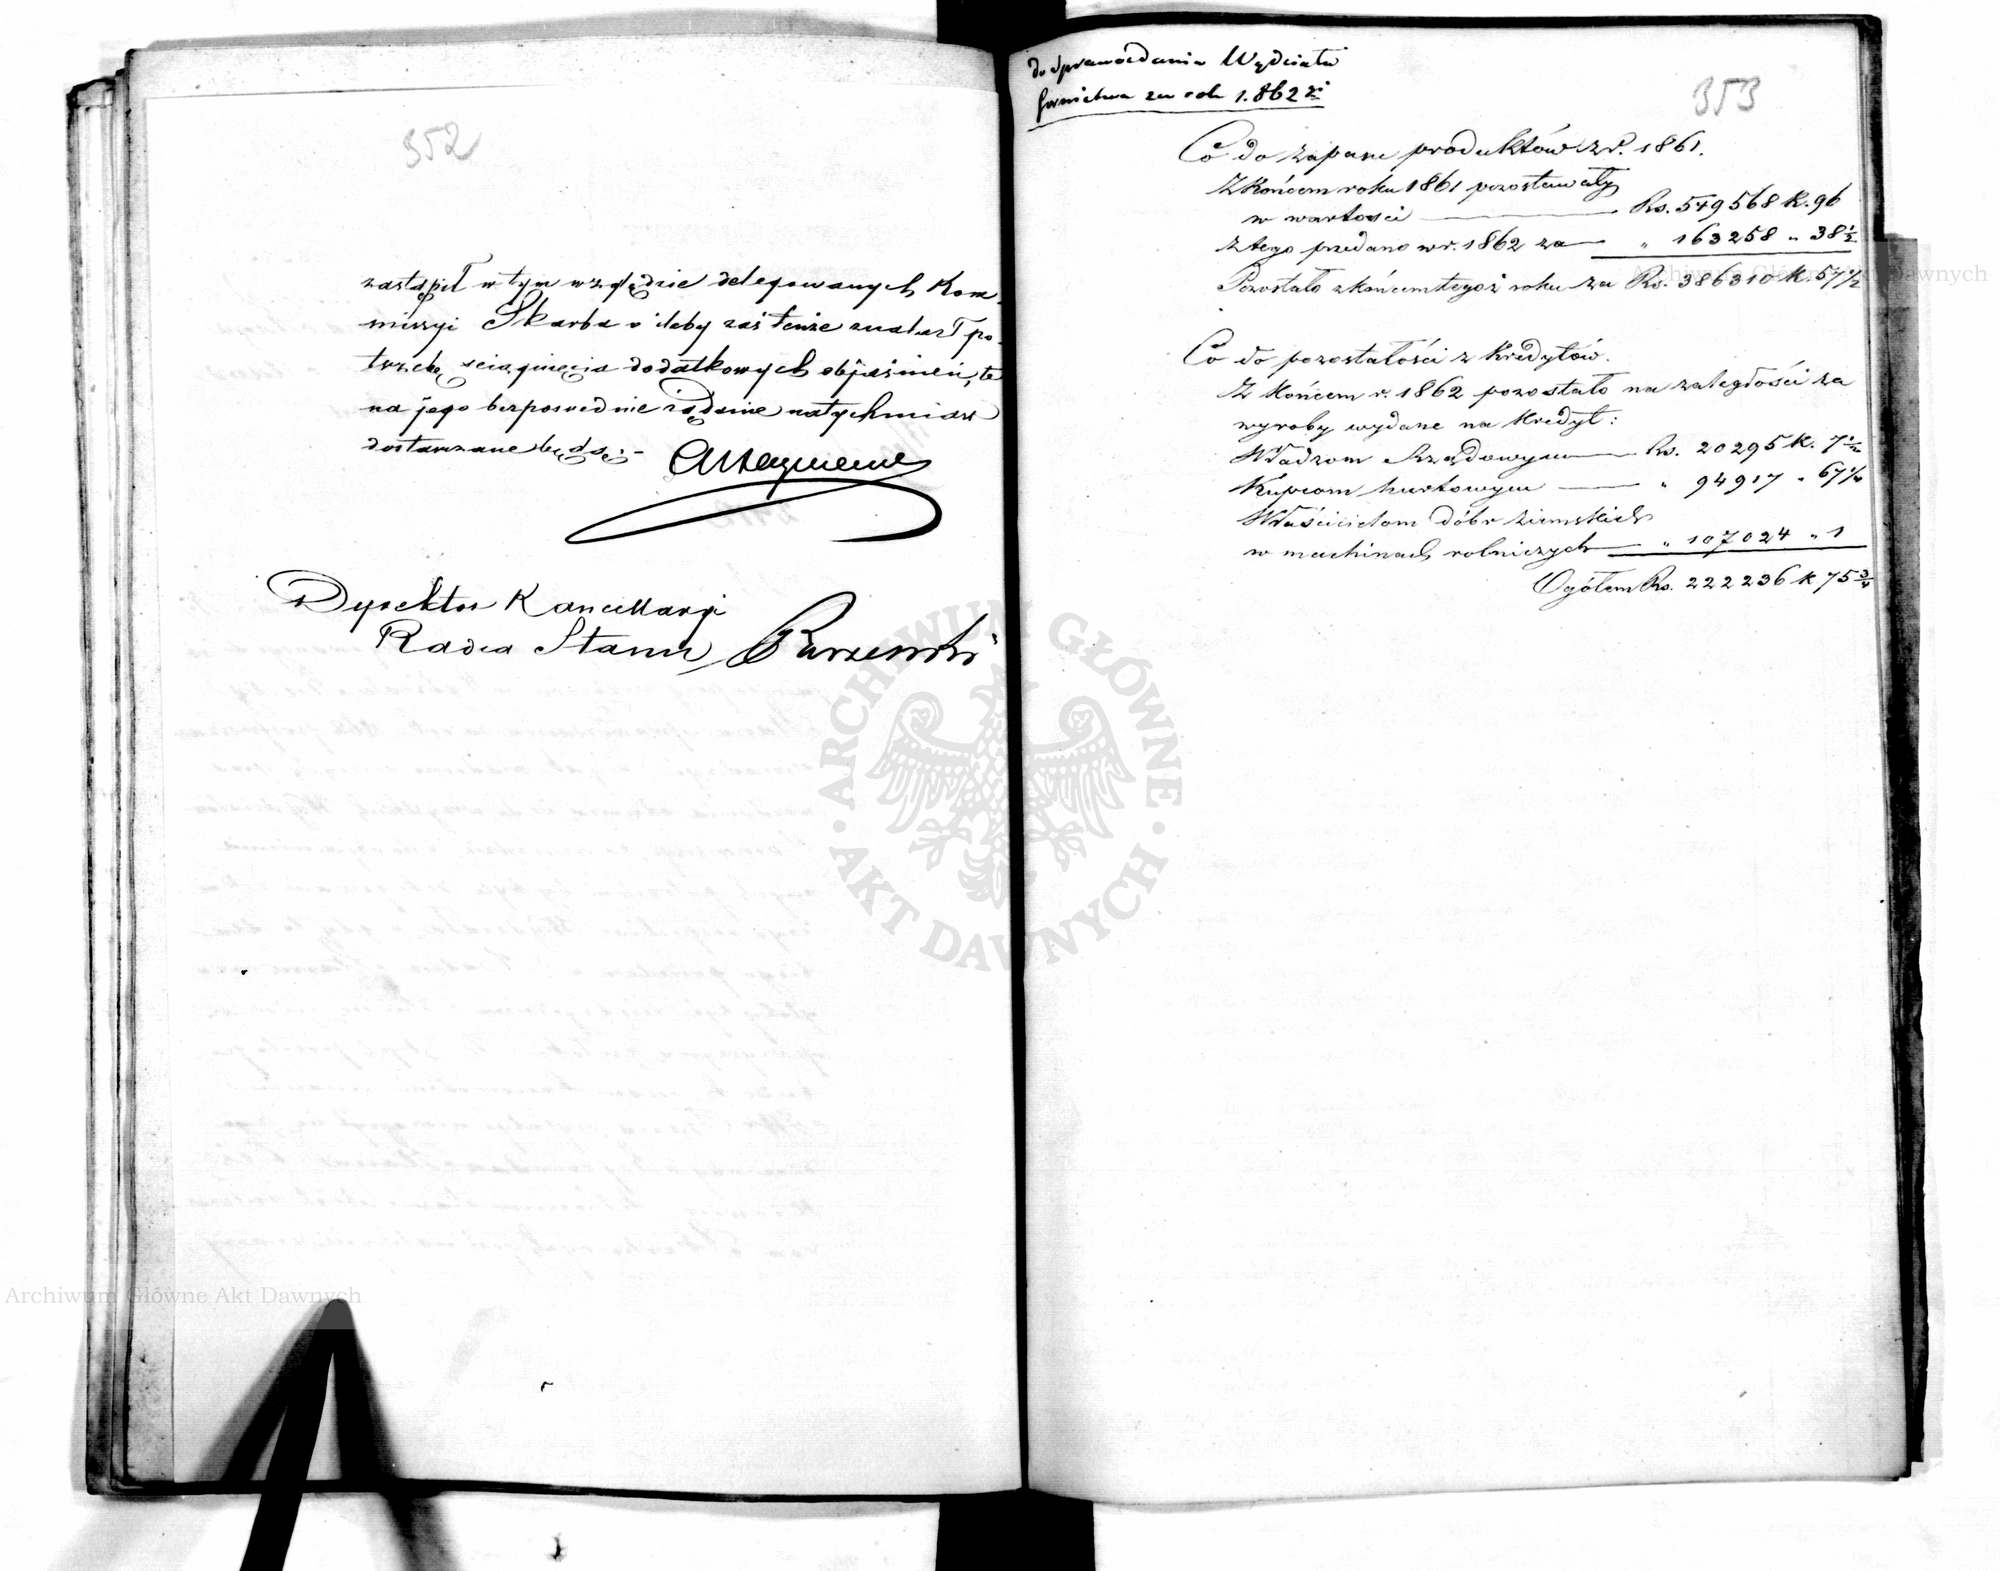 352
zastąpił w tym względzie delegowanych Kom-
missyi Skarbu i ileby zaś tenże znalazł po-
trzebę ściągnięcia dodatkowych objaśnień, te
na jego bezpośrednie żądanie natychmiast
dostarczane będą.-
Dyrektor Kancellaryi
Radca Stanu
do Sprawozdania Wydziału
Górnictwa za rok 1.862 ź
353
Co do zapasu produktów z r. 1861.
Z końcem roku 1861 pozostawały
w wartości Rs. 549568 K. 96
z tego przedano w r. 1862 za " 163258 " 38½
Pozostało z końcem tegoż roku za Rs. 386310 K. 57½
Co do pozostałości z Kredytów.
Z końcem r. 1862 pozostało na zaległości za
wyroby wydane na Kredyt:
Władzom Rządowym Rs. 20295 K. 7½
Kupcom hurtowym " 94917 " 67¼
Właścicielom dóbr ziemskich
w machinach rolniczych " 107024 " 1
Ogółem Rs. 222236 K 75¾
ARCHIWUM GŁÓWNE
AKT DAWNYCH
Archiwum Główne Akt Dawnych
Archiwum Główne Akt Dawnych